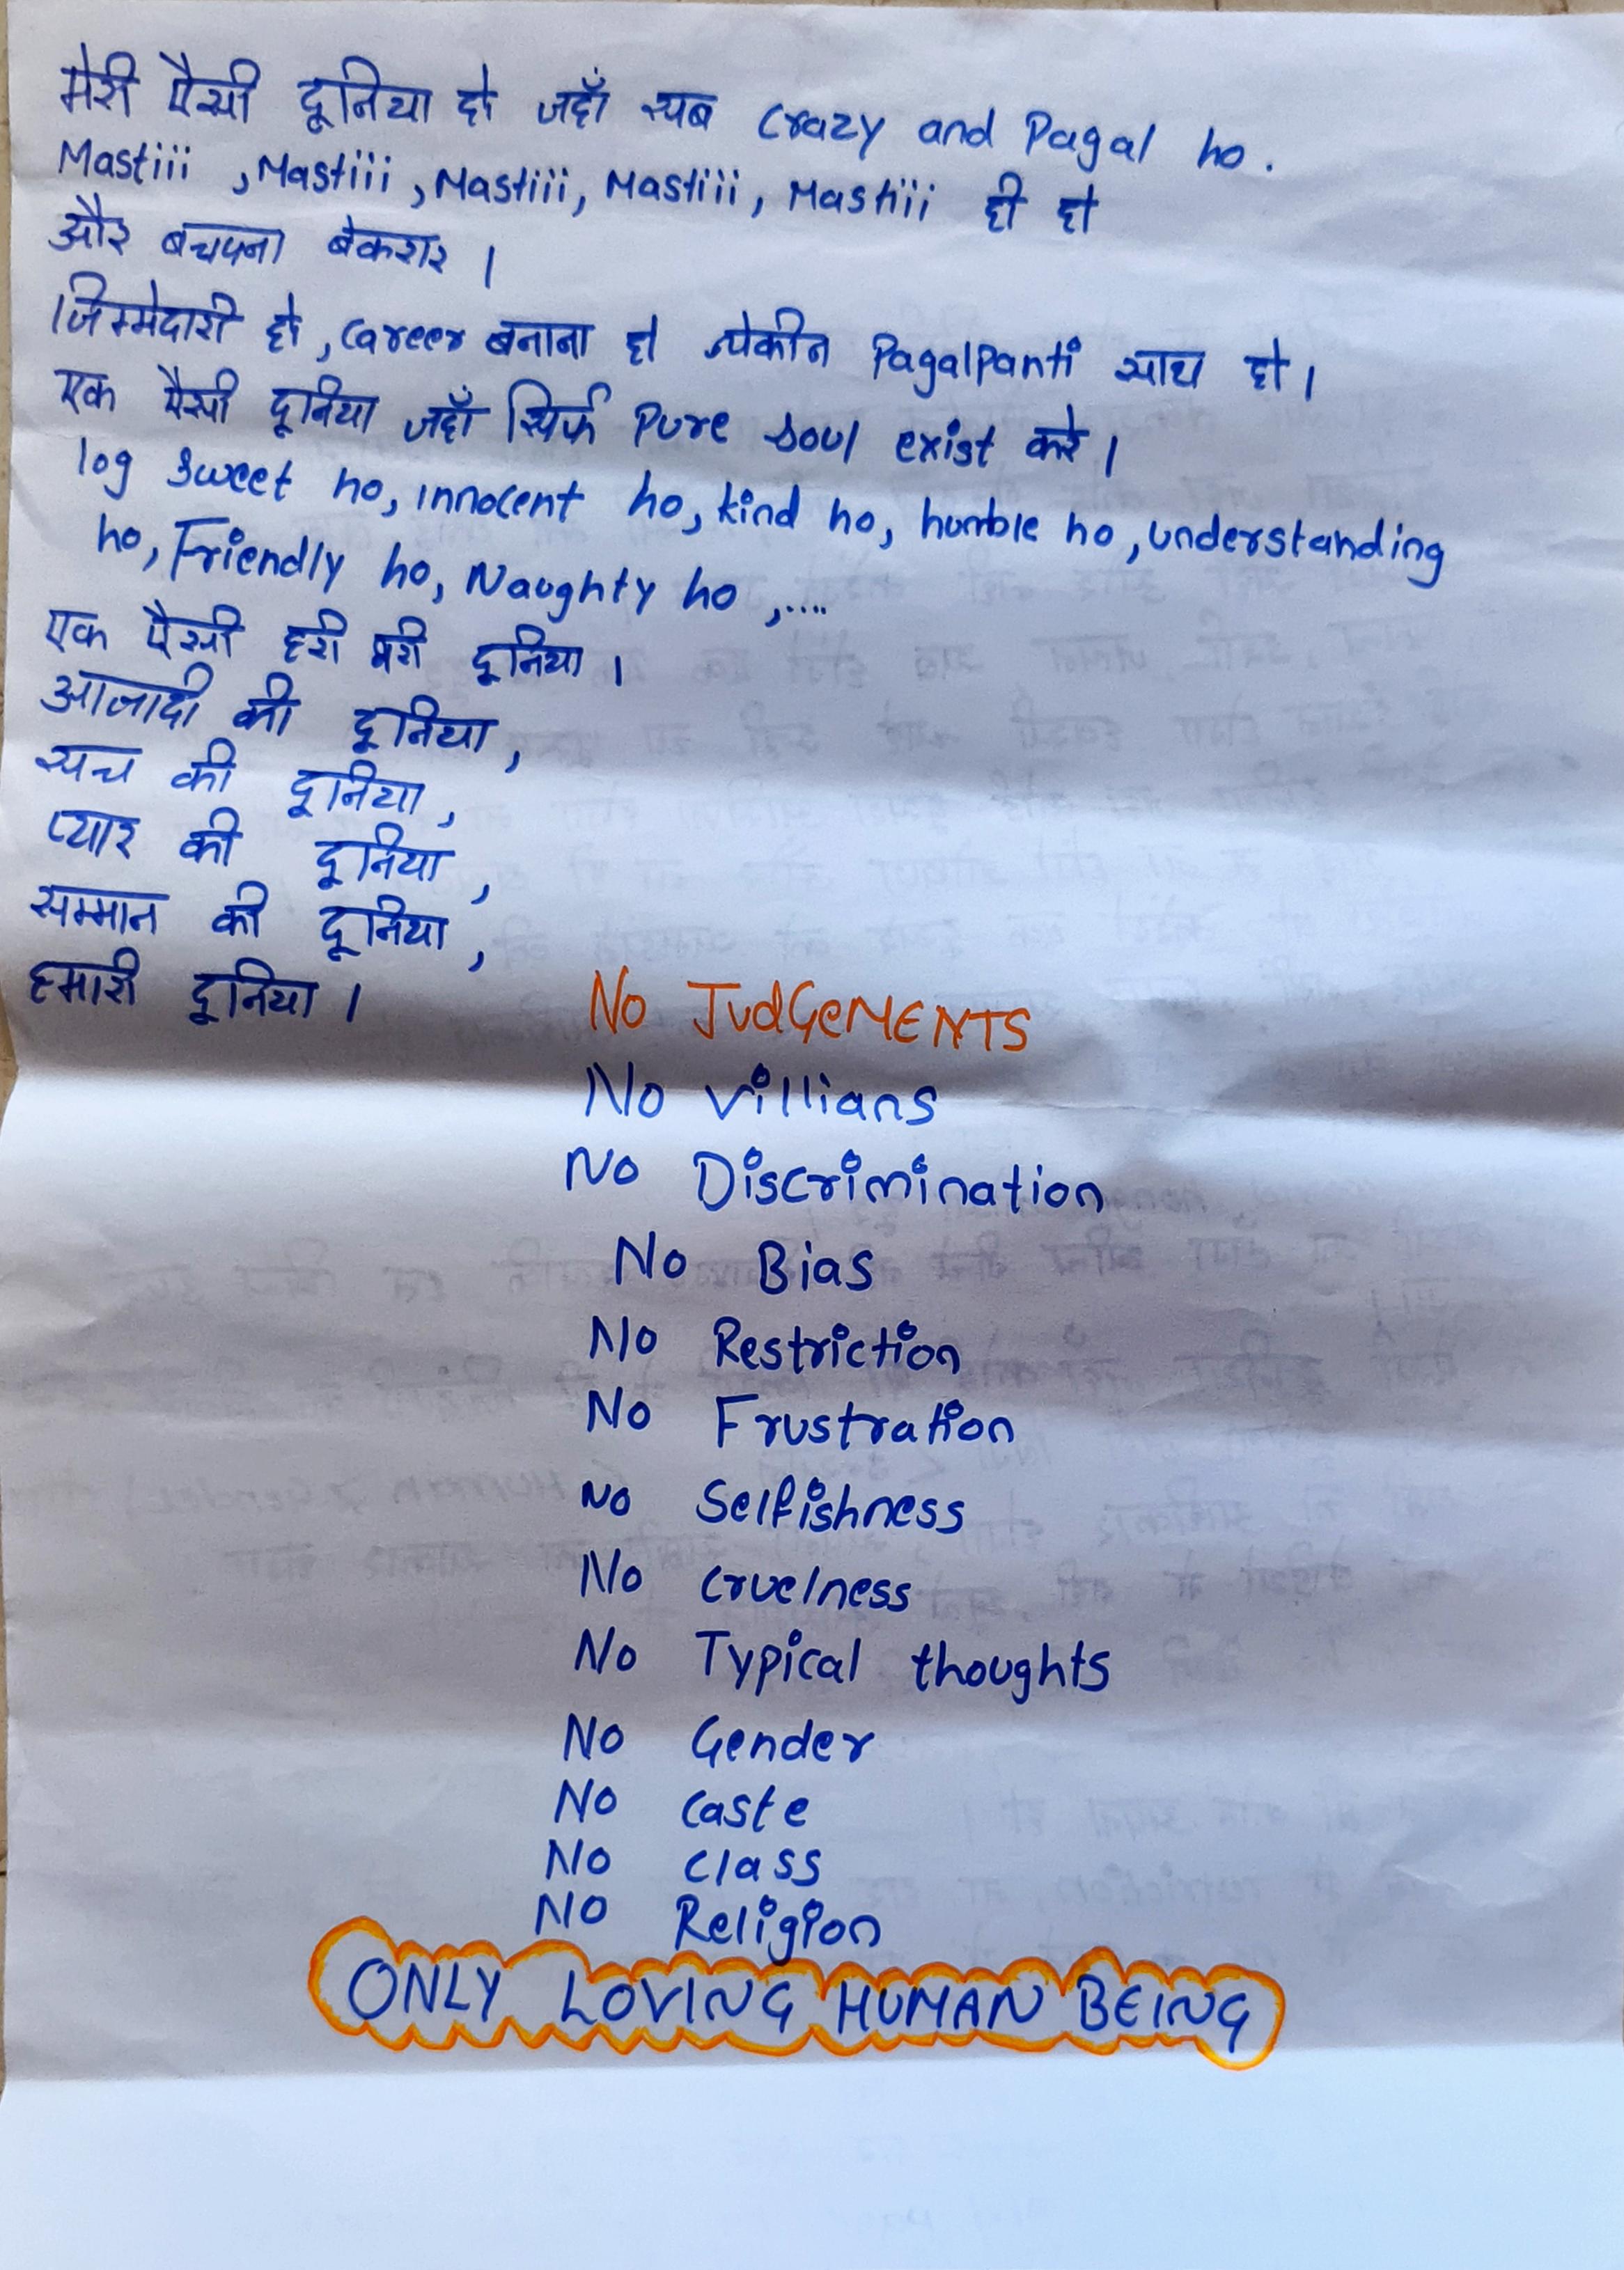 मेरी ऐसी दूनिया हो जहाँ सब crazy and Pagal ho.
Mastiii, Mastiii, Mastiii, Mastiii, Mastiii ही हो
और बचपना बेकरार।
जिम्मेदारी हो, career बनाना हो लेकीन Pagalpanti साथ हो।
एक ऐसी दूनिया जहाँ सिर्फ Pure soul exist करे।
log sweet ho, innocent ho, kind ho, humble ho, understanding
ho, Friendly ho, Naughty ho,....
एक ऐसी हरी भरी दूनिया।
आजादी की दूनिया,
सच की दूनिया,
प्यार की दूनिया,
सम्मान की दूनिया,
हमारी दूनिया।
No JudGeMENTS
No villians
No Discrimination
No Bias
No Restriction
No Frustration
No Selfishness
No cruelness
No Typical thoughts
No Gender
No caste
No class
No Religion
ONLY LOVING HUMAN BEING